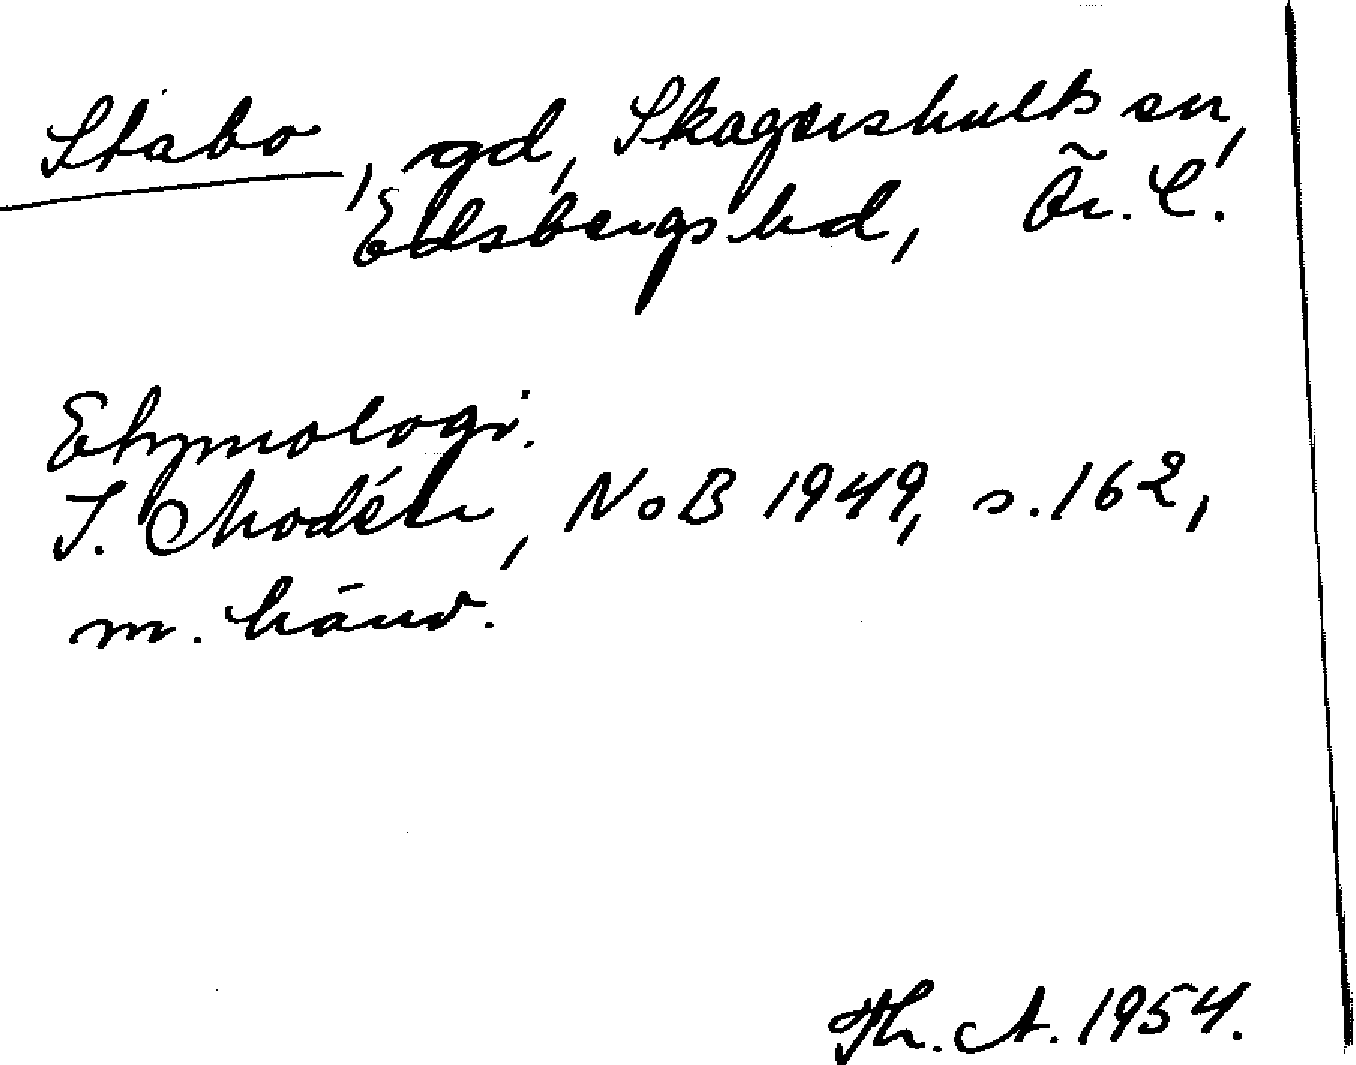 Stabo, gd, Skagershults sn,
Edsbergs hd, Ör. l.
Etymologi.
I. Modéer, NoB 1949, s. 162,
m. hänv.
Th. A. 1954.